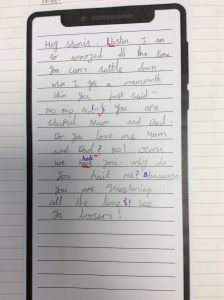 Hey stonis. Listen I am
so annoyed all the time
You can't settle down
when I got a mammoth
skin You just said "
No no no!". You are
stupid Mum and Dad.
Do You love me Mum
and Dad? No! Of
we hate You. why do
You hait me? Because
You are
all the time? I! See
Ya loosers!